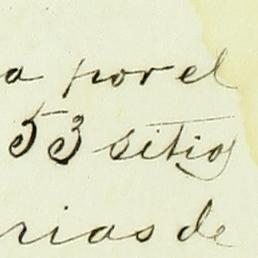 a por el
53 sitio
rias de